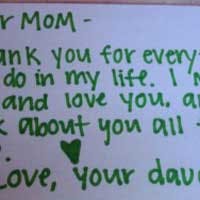 r MOM -
ank you for every-
do in my life. I
and love you, a
k about you all -
Love, your dau